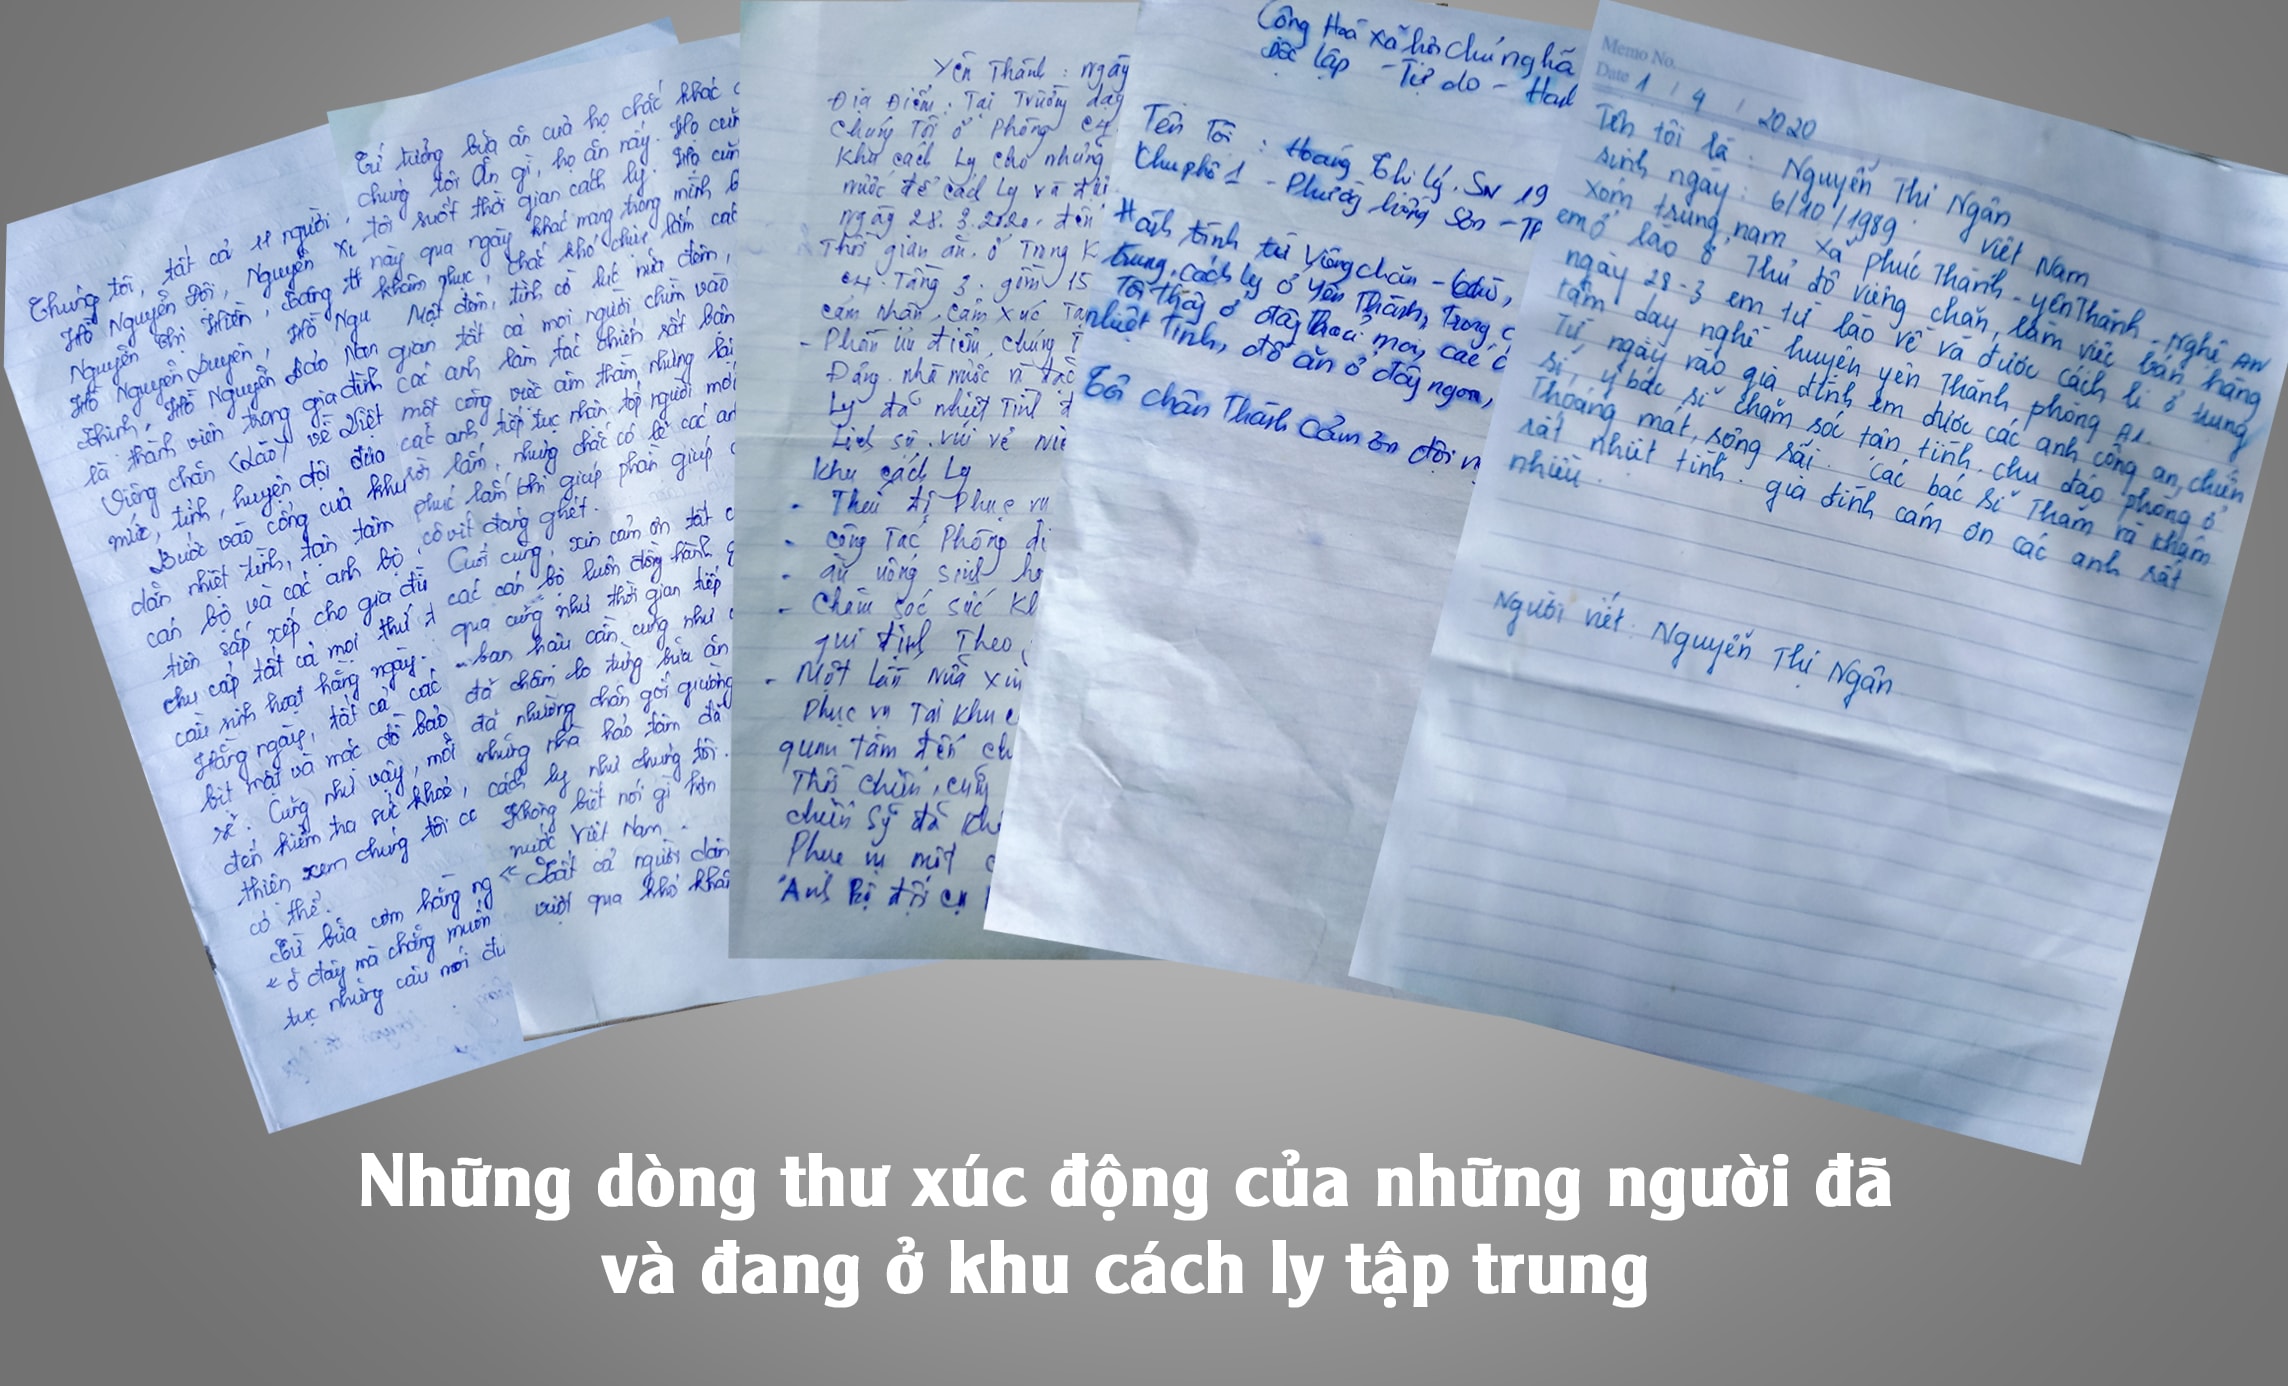 Chúng tôi, tất cả 11 người,
Hồ Nguyễn Đôi, Nguyễn Xu
Nguyễn Thị Hiền,
Hồ Nguyễn Duyên, Hồ Ngu
Thinh, Hồ Nguyễn Bảo Nam
là thành viên trong gia đình
Viêng chăn (Lào) về Việt
mức, tỉnh, huyện đội đưa
Bước vào cổng của khu
dẫn nhiệt tình, tận tâm
cán bộ và các anh bộ
tiên sắp xếp cho gia đì
chu cấp tất cả mọi thứ
cầu sinh hoạt hằng ngày.
Hằng ngày, tất cả các
bịt mặt và mặc đồ bảo
Cũng như vậy, mỗi
đến kiểm tra sức khoẻ,
thiên xem chúng tôi có
có thể.
Từ bữa cơm hằng ng
"ở đây mà chẳng muốn
tục những câu nói đù
Từ tưởng bữa ăn của họ chắc khác
chúng tôi ăn gì, họ ăn này. Họ cũn
tôi suốt thời gian cách ly. Họ cũn
này qua ngày khác mang trong mình
khâm phục, chắc khó chịu lắm các
Một đêm, tình cờ lúc nửa đêm,
gian tất cả mọi người chìm vào
các anh làm tác chiến rất bân
một công việc âm thầm nhưng lại
các anh, tiếp tục nhận tốp người mới
rồi lắm, nhưng chắc có lẽ các an
phúc lắm khi giúp phần giúp
côvit đáng ghét.
Cuối cùng, xin cảm ơn tất
các cán bộ luôn đồng hành
qua cũng như thời gian tiếp
ban hậu cần cũng như
đã chăm lo từng bữa ăn
đã nhường chăn gối giường
những nhà hảo tâm đã
cách ly như chúng tôi.
Không biết nói gì hơn
nước Việt Nam.
"Tất cả người dân
vượt qua khó khăn
Yên Thành: ngày
Địa Điểm: Tại Trường dạy
Chúng Tôi ở Phòng C4
Khu cách Ly cho những
nước để cách Ly và đi
ngày 28.3.2020. đến
Thời gian ăn, ở Trong K
C4. Tầng 3. gồm 15
cảm nhân, cảm xúc Tạ
- Phần ưu điểm, chúng T
Đảng, nhà nước và
Ly đã nhiệt Tình đ
Lịch sự. vui vẻ
Khu cách Ly
- Phục vụ
- công Tác Phòng dị
- ăn uống sinh ho
- Chăm sóc sức kh
qui định Theo
- Một lần nữa xin
Phục vụ Tại khu
quan tâm đến ch
Thời chiến, cũng
chiến sỹ đã kh
Phục vụ một
"Anh Bộ đội cụ
Cộng Hoà xã hội chủ nghĩa
Độc lập - Tự do - Hạnh
Tên Tôi : Hoàng Thị Lý. SN 19
Khu phố 1 - Phường Hồng Sơn - TP
Hành trình từ Viêng chăn -
trung cách ly ở Yên Thành, Trong
Tôi thấy ở đây Thoải mái, các
nhiệt Tình, đồ ăn ở đây ngon,
Tôi chân Thành Cảm ơn đội
Memo No.
Date 1 / 4 / 2020
Tên tôi là : Nguyễn Thị Ngân
sinh ngày : 6/10/1989. Việt Nam
xóm trung nam xã phúc Thành - yên Thành - Nghệ An
em ở lào ở Thủ đô viêng chăn, làm việc bán hàng
ngày 28-3 em từ lào về và được cách li ở trung
tâm dạy nghề huyện yên Thành phòng A1.
Từ ngày vào gia đình em được các anh công an, chiến
sĩ, y bác sĩ chăm sóc tận tình. chu đáo phòng ở
Thoáng mát, sông sãi. các bác sĩ Thăm và khám
rất nhiệt tình. gia đình cám ơn các anh rất
nhiều.
Người viết: Nguyễn Thị Ngân
Những dòng thư xúc động của những người đã
và đang ở khu cách ly tập trung